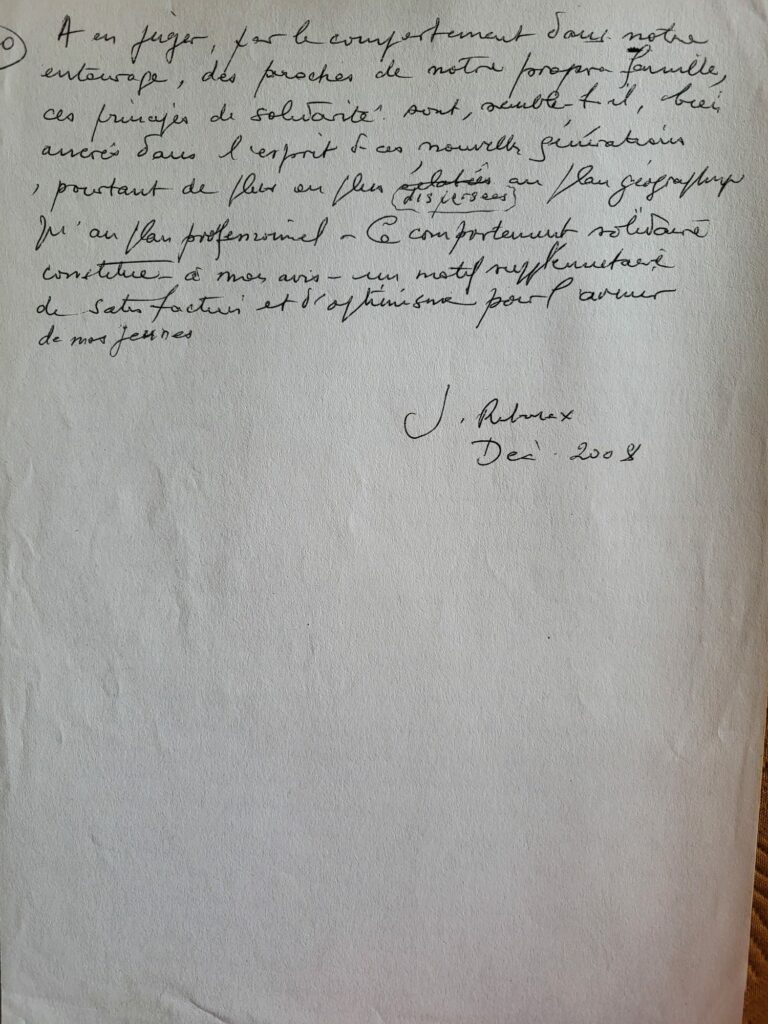 A en juger, par le comportement dans notre
entourage, des proches de notre propre famille,
ces principes de solidarité sont, semble-t-il, bien
ancrés dans l'esprit de ces nouvelles générations
, pourtant de plus en plus éclatées au plan géographique
(dispersées)
qu'au plan professionnel - Ce comportement solidaire
constitue - à mon avis - un motif supplémentaire
de satisfaction et d'optimisme pour l'avenir
de nos jeunes
J.
Dec. 2008